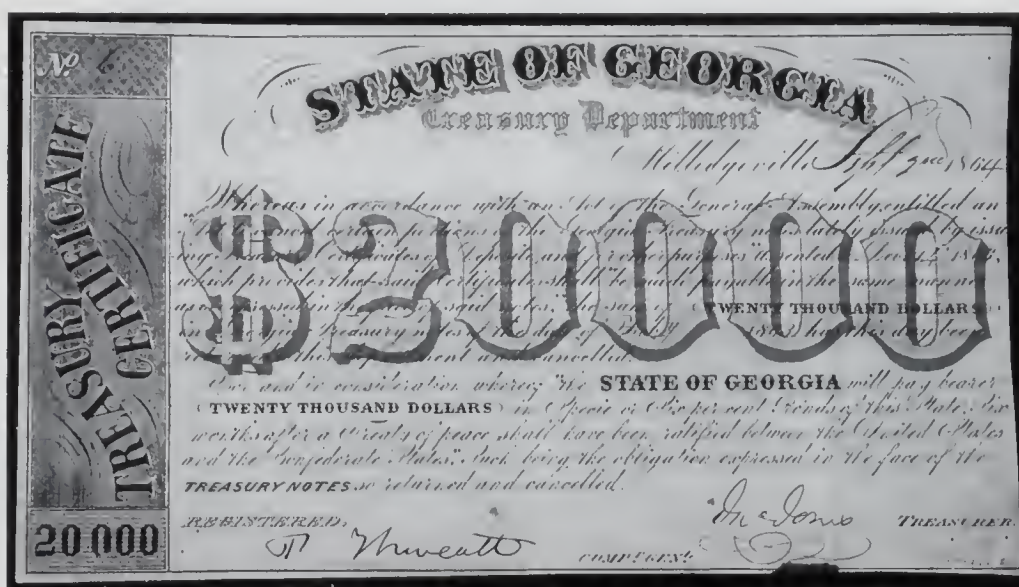 No 1
TREASURY CERTIFICATE
20000
STATE OF GEORGIA
Treasury Department
Milledgeville Sept 1864
$20000
Whereas in accordance with an Act of the General Assembly, entitled an
certain portions of the Georgia Treasury notes lately issued by issu
ing Certificates of Deposite and for other purposes" assented
which provides that said Certificates shall be made payable in the same manner
TWENTY THOUSAND DOLLARS
in Treasury notes has this day been
this Department and cancelled.
Now and in consideration whereof The STATE OF GEORGIA will pay bearer
TWENTY THOUSAND DOLLARS in Specie or Six per cent Bonds of this State, Six
months after a Treaty of peace shall have been ratified between the United States
and the "Confederate States". Such being the obligation expressed in the face of the
TREASURY NOTES so returned and cancelled.
REGISTERED.
Jno Jones TREASURER.
Thweatt COMP. GENL.